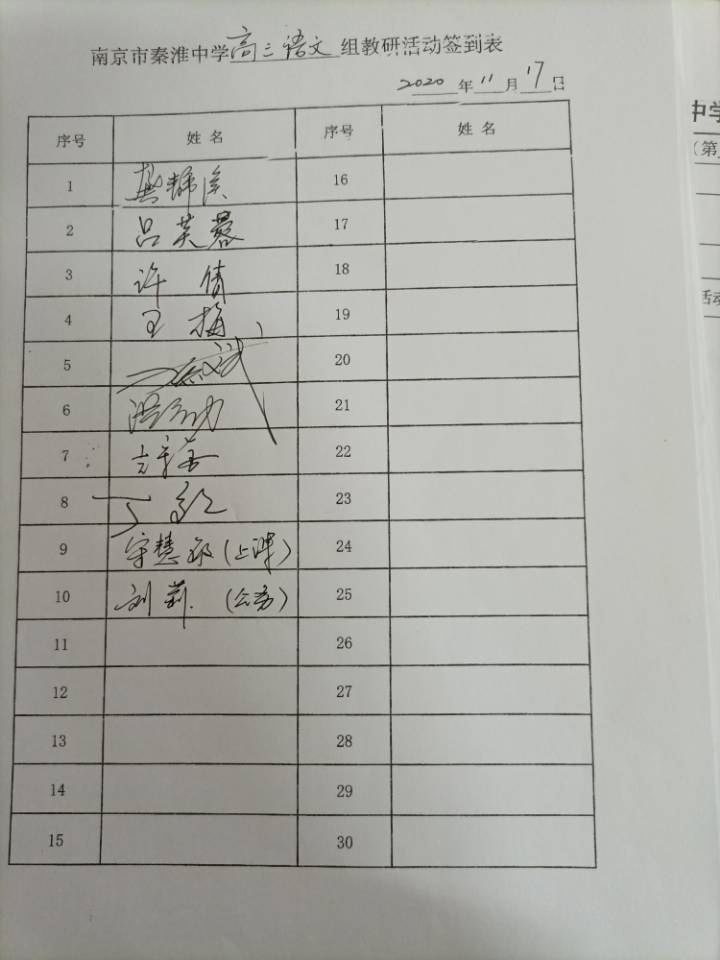 南京市秦淮中学高三语文组教研活动签到表
2020年11月17日
序号 姓名 序号 姓名
1 16
2 吕芙蓉 17
3 许倩 18
4 王梅 19
5 20
6 21
7 22
8 丁 23
9 慧 (上课) 24
10 刘莉. (公务) 25
11 26
12 27
13 28
14 29
15 30
中学
(第
活动